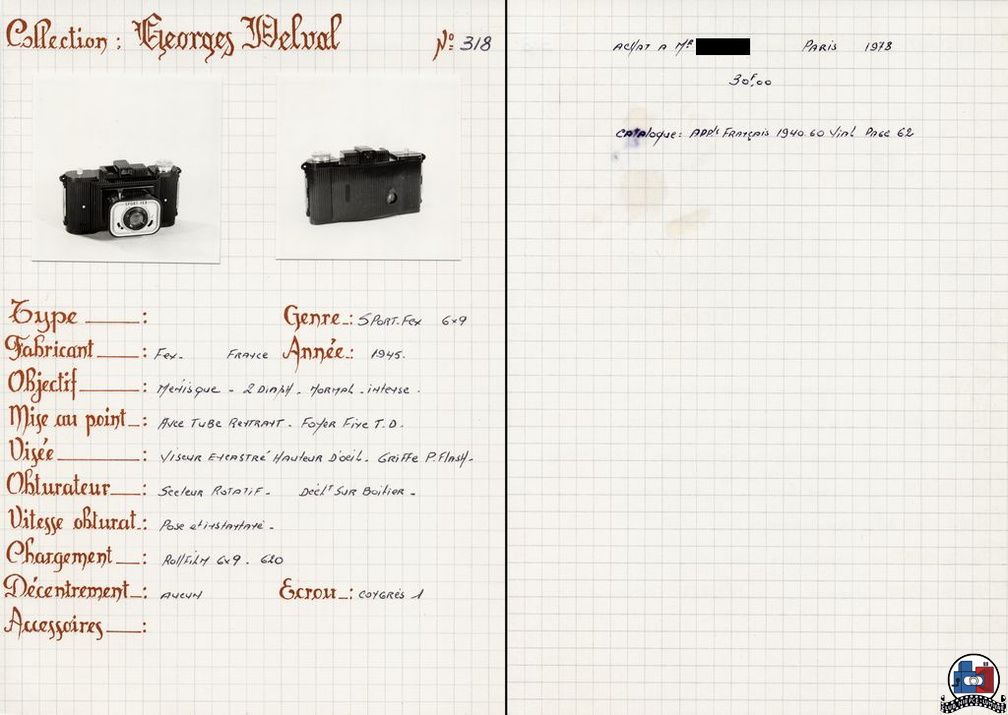 Collection : Georges Delval
Nº 318
SPORT-FEX
Type : 
Genre : SPORT.FEX 6x9
Fabricant : FEX. FRANCE
Année : 1945.
Objectif : MENISQUE - 2 DIAPH. NORMAL . INTENSE .
Mise au point : AVEC TUBE RENTRANT . FOYER FIXE T.D.
Visée : VISEUR ENCASTRÉ HAUTEUR D'OEIL - GRIFFE P.FLASH.
Obturateur : SECTEUR ROTATIF - DÉCLT SUR BOITIER -
Vitesse obturat. : POSE et INSTANTANÉ -
Chargement : ROLLFILM 6x9 . 620
Décentrement : AUCUN
Ecrou : CONGRÈS 1
Accessoires :
ACHAT A MR PARIS 1978
30F,00
CATALOGUE : APPLS FRANÇAIS 1940.60 VIAL PAGE 62